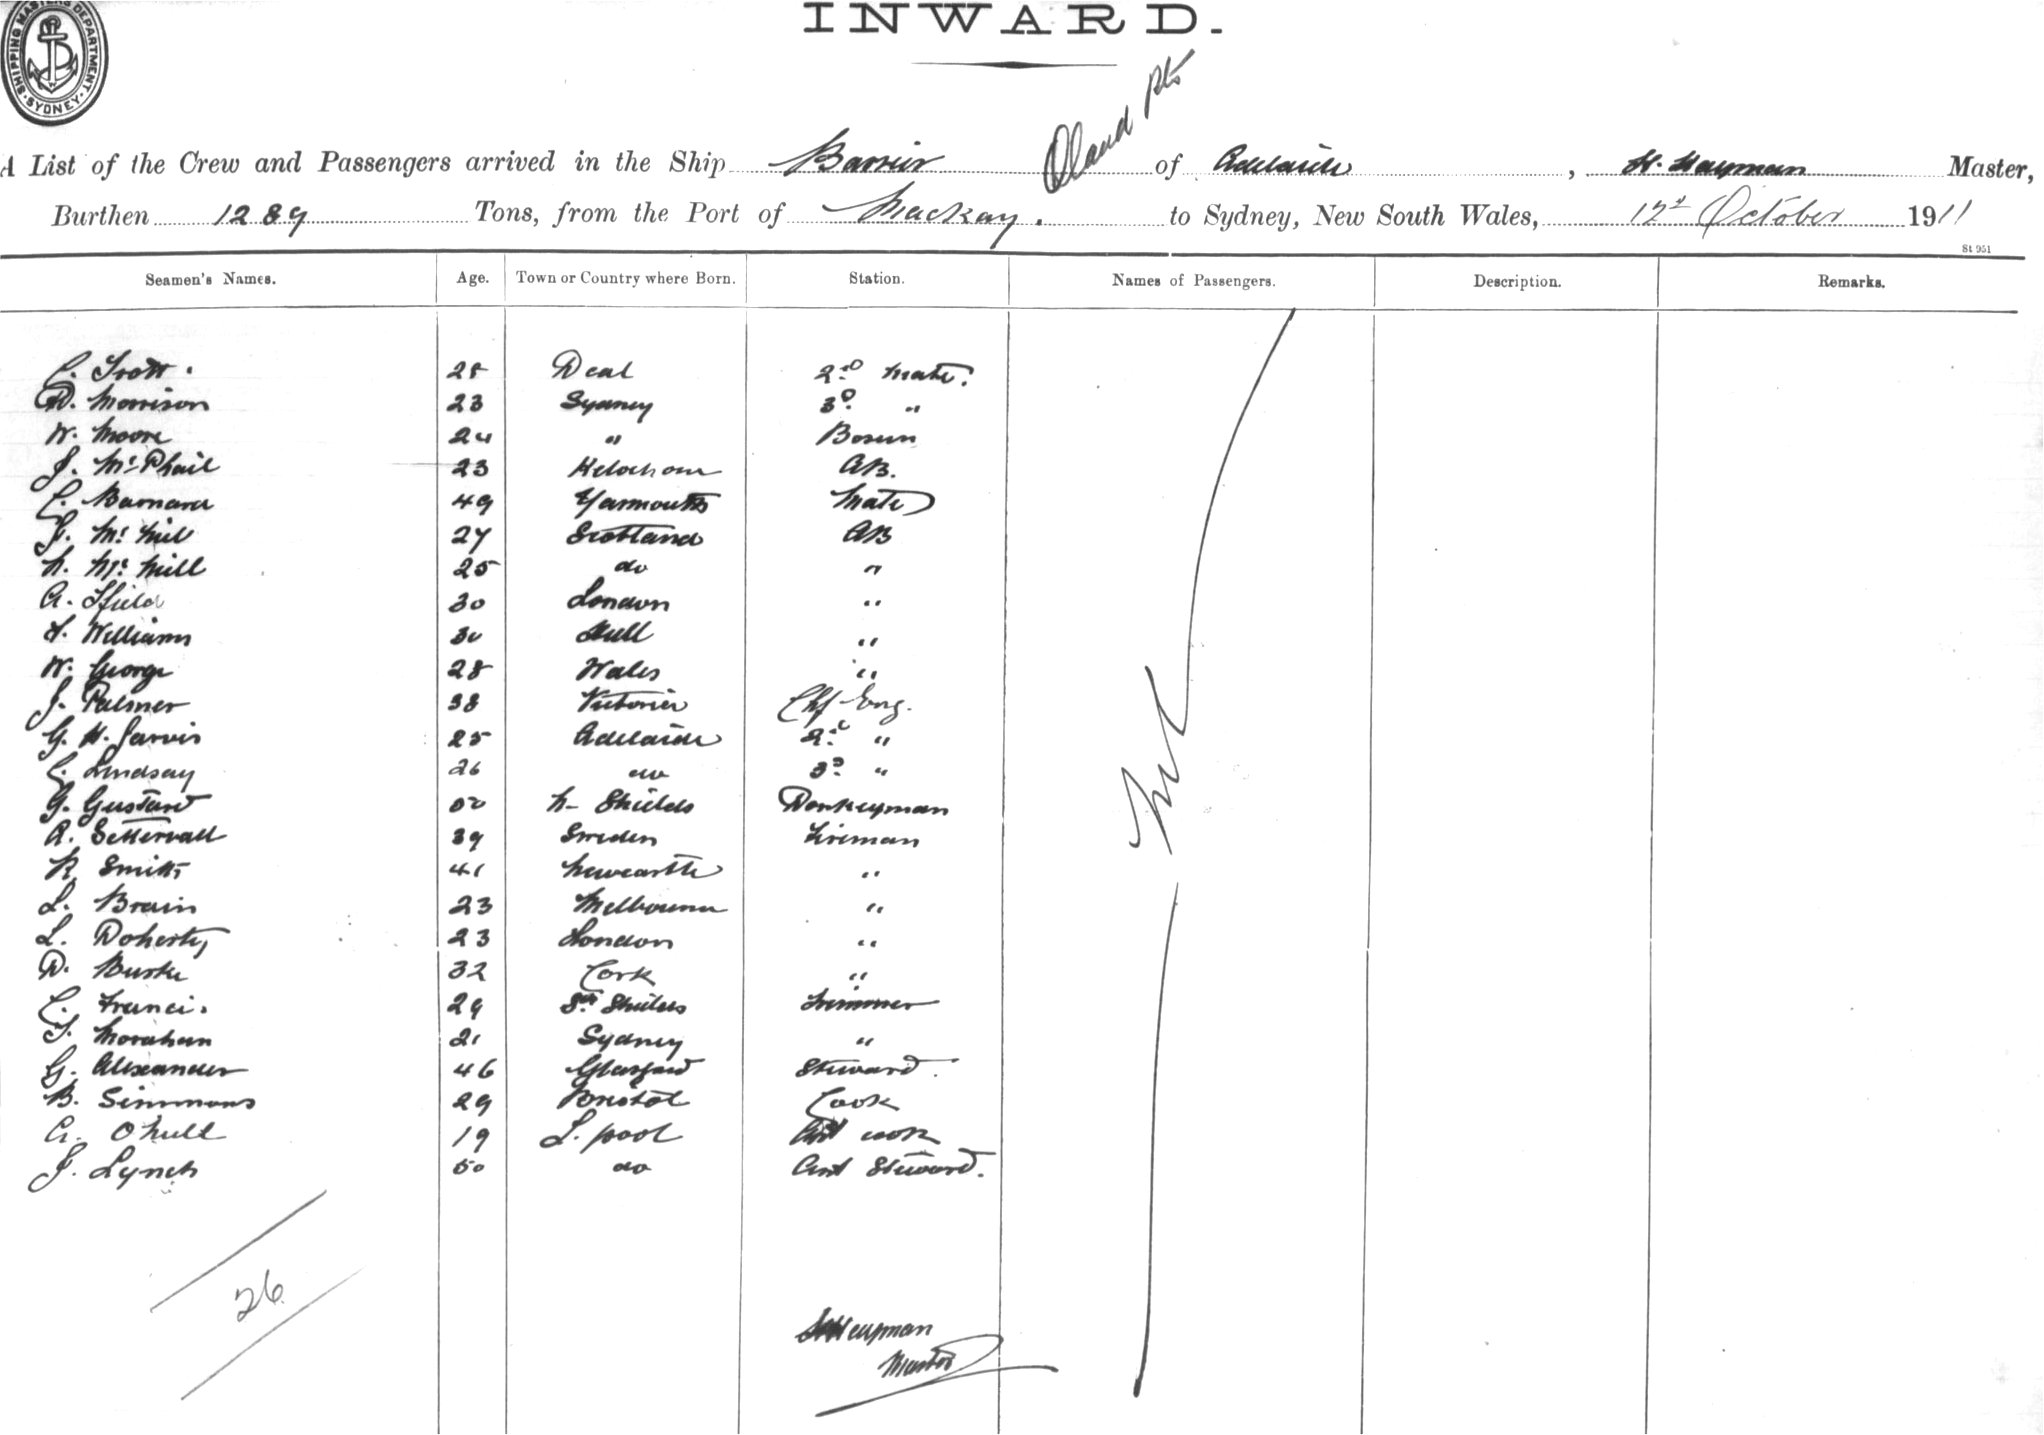 SHIPPING MASTERS DEPARTMENT. SYDNEY.
INWARD.
A List of the Crew and Passengers arrived in the Ship Barrier of Adelaide, H. Hayman Master,
Burthen 1289 Tons, from the Port of Mackay. to Sydney, New South Wales, 12th October 1911
St 951
Seamen's Names. Age. Town or Country where Born. Station. Names of Passengers. Description. Remarks.
C. Trott. 28 Deal 2nd Mate.
D. Morrison 23 Sydney 3d "
W. Moore 24 " Bosun
J. McPhail 23 AB.
C. Barnard 49 Yarmouth Mate
J. 27 Scotland AB
25 do "
A. Ifield 30 London "
Williams 30 Hull "
W. George 28 Wales "
J. Palmer 38 Victoria Chf Eng.
G. H. Jarvis 25 Adelaide 2d "
C. Lindsay 26 do 3d "
G. Gustard 50 N. Shields Donkeyman
A. Settervall 39 Sweden Fireman
R. Smith 41 Newcastle "
L. Brain 23 Melbourne "
L. Doherty 23 London "
D. Burke 32 Cork "
C. Francis 29 Sth Shields Trimmer
T. Morahan 21 Sydney "
G. Alexander 46 Glasgow Steward.
B. Simmons 29 Bristol Cook
A. 19 L. pool Asst cook
J. Lynch 50 do Asst Steward.
Nil
26
H Hayman
Master